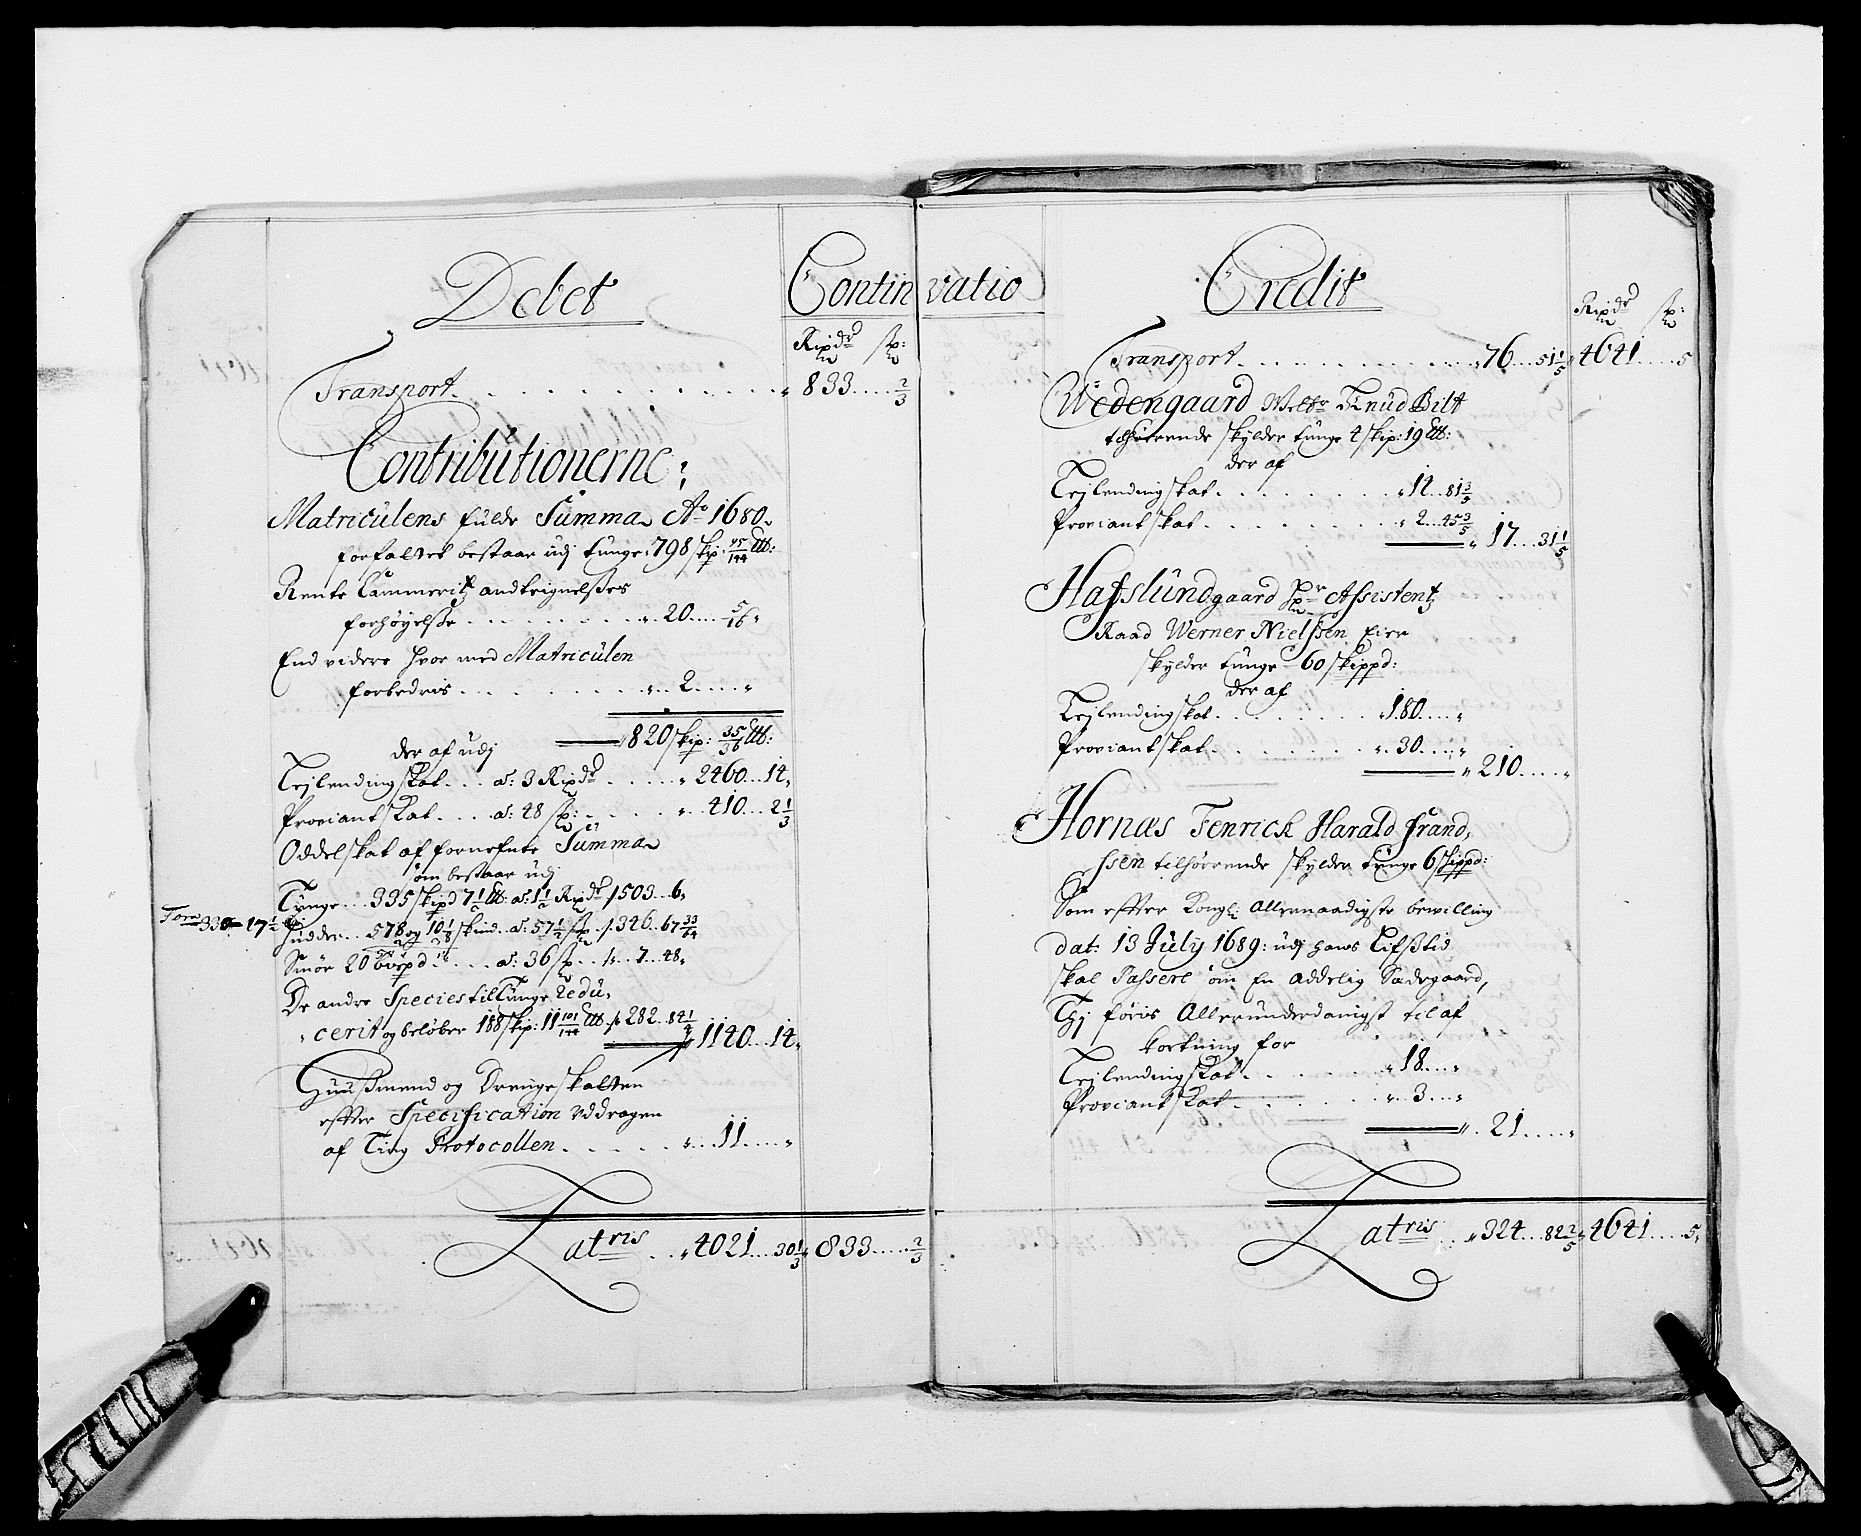 Debet
Continvatio
Rixdr sk:
Transport . . . . . . . . . . " 833 .... 2/3
Contributionerne;
Matriculens fulde Summa Ao 1680.
forfattet bestaar udj tunge: 798 skip: 45/144 lb:
Rente Cammeritz andteignelsses
forhøyelsse . . . . . . . . " 20 .... 5/16 "
End videre hvor med Matriculen
forbedris . . . . . . . . " 2 .... "
820 skip: 35/36 lb:
der af udj
Leylendingskat . . . a: 3 Rixdr . . . . " 2460 .. 14 "
Proviant Skat . . . . a: 48 sk: . . . . " 410 .. 2 1/3
Oddelskat af fornefnte Summa
som bestaar udj
Tunge .. 335 skipd 7 1/2 lb a: 1 1/2 Rixdr / 503 .. 6 "
Huder .. 578 og 10 1/8 skind a: 57 1/2 sk / 346 .. 67 33/64
Smør 20 a: 36 sk .. 7 .. 48 "
De andre Species til Tunge Redu,
cerit og beløber 188 skip: 11 101/144 lb / 282 .. 84 1/4
" 1140 .. 14 "
Huusmend og Drengeskatten
effter Specification Uddragen
af Ting Protocollen . . . . . " 11 .... "
Latris . . " 4021 ... 30 1/3 " 833 ..... 2/3
Credit
Rixdr sk:
Transport . . . . . . . . . . " 76 ... 51 1/5 " 4641 .... 5
Wedengaard Welbr Knud Bilt
tilhørende skylder tunge 4 skip: 19 lb:
der af
Leylendingskat . . . . . . . . " 14 .. 81 3/5
Proviant skat . . . . . . . . " 2 .. 45 3/5
" 17 ... 31 1/5
Hafslundgaard Hr Assistentz
Raad Werner Nielssen Eier
skylder tunge 60 skippd:
der af
Leylendingskat . . . . . . . " 180 .... "
Proviantskat . . . . . . . " 30 .... "
" 210 .... "
Hornæs Fenrick Harald Frand,
ssen tilhørende skylder tunge 6 skippd:
Som effter Kongl: Allernaadigste bewilling
dat: 13 July 1689: udj hans Lifsstid
skal Passere som En addelig Sædegaard,
Thj føris Allerunderdanigst til af
kortning for
Leylendingskat . . . . . . " 18 .... "
Proviant Skat . . . . . . " 3 .... "
" 21 .... "
Latris . . " 324 ... 82 2/5 " 4641 .... 5 "